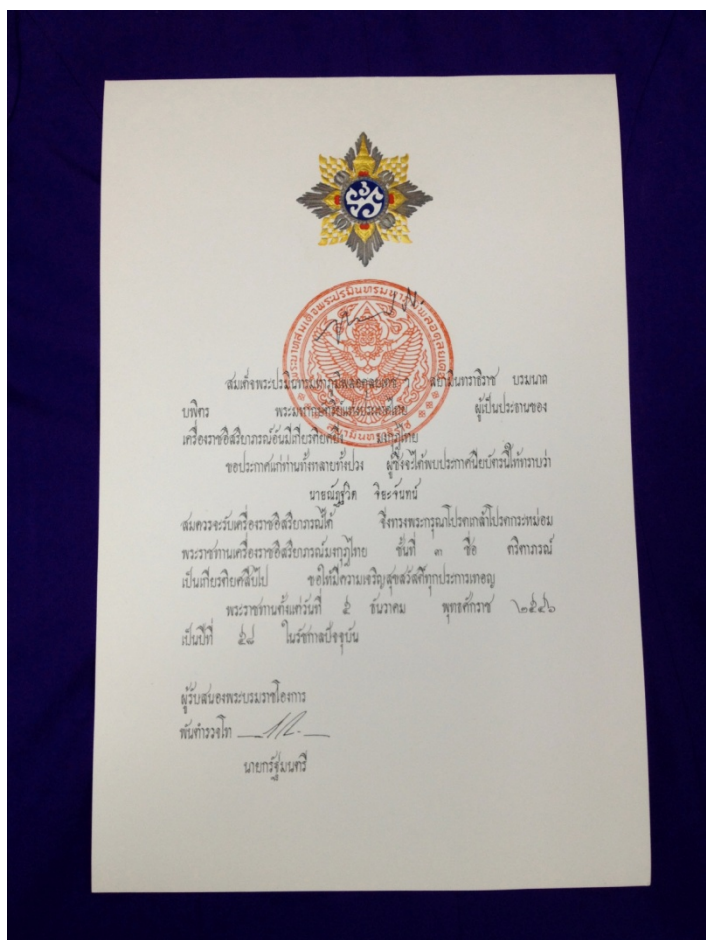 สมเด็จพระปรมินทรมหาภูมิพลอดุลยเดช ฯ สยามินทราธิราช บรมนาถ
บพิตร พระมหากษัตริย์แห่งประเทศไทย ผู้เป็นประธานของ
เครื่องราชอิสริยาภรณ์อันมีเกียรติยศยิ่ง มงกุฎไทย
ขอประกาศแก่ท่านทั้งหลายทั้งปวง ผู้ซึ่งจะได้พบประกาศนียบัตรนี้ให้ทราบว่า
นายณัฏฐวิต จิระจันทน์
สมควรจะรับเครื่องราชอิสริยาภรณ์ได้ จึงทรงพระกรุณาโปรดเกล้าโปรดกระหม่อม
พระราชทานเครื่องราชอิสริยาภรณ์มงกุฎไทย ชั้นที่ ๓ ชื่อ ตริตาภรณ์
เป็นเกียรติยศสืบไป ขอให้มีความเจริญสุขสวัสดิ์ทุกประการเทอญ
พระราชทานตั้งแต่วันที่ ๕ ธันวาคม พุทธศักราช ๒๕๔๖
เป็นปีที่ ๕๘ ในรัชกาลปัจจุบัน
ผู้รับสนองพระบรมราชโองการ
พันตำรวจโท
นายกรัฐมนตรี